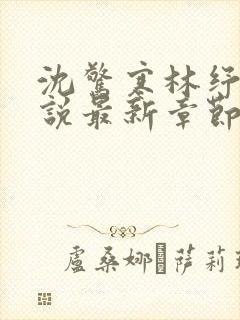 沈驚寒林紓
說最新章節
盧桑娜·薩莉瑪